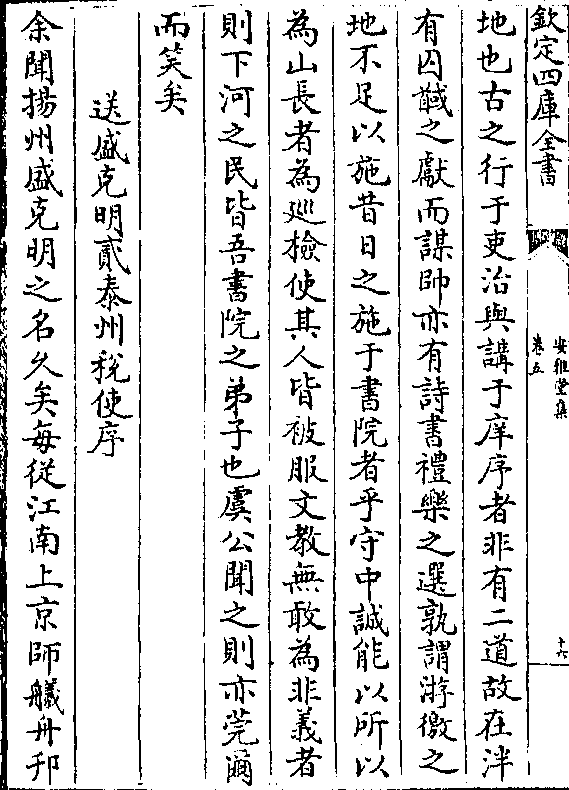 欽定四庫全書
安雅堂集
卷五
十六
地也古之行于吏治與講于庠序者非有二道故在泮
有囚馘之獻而謀帥亦有詩書禮樂之選孰謂游徼之
地不足以施昔日之施于書院者乎守中誠能以所以
為山長者為巡檢使其人皆被服文教無敢為非義者
則下河之民皆吾書院之弟子也虞公聞之則亦莞爾
而笑矣
送盛克明貳泰州稅使序
余聞揚州盛克明之名久矣每從江南上京師艤舟邗